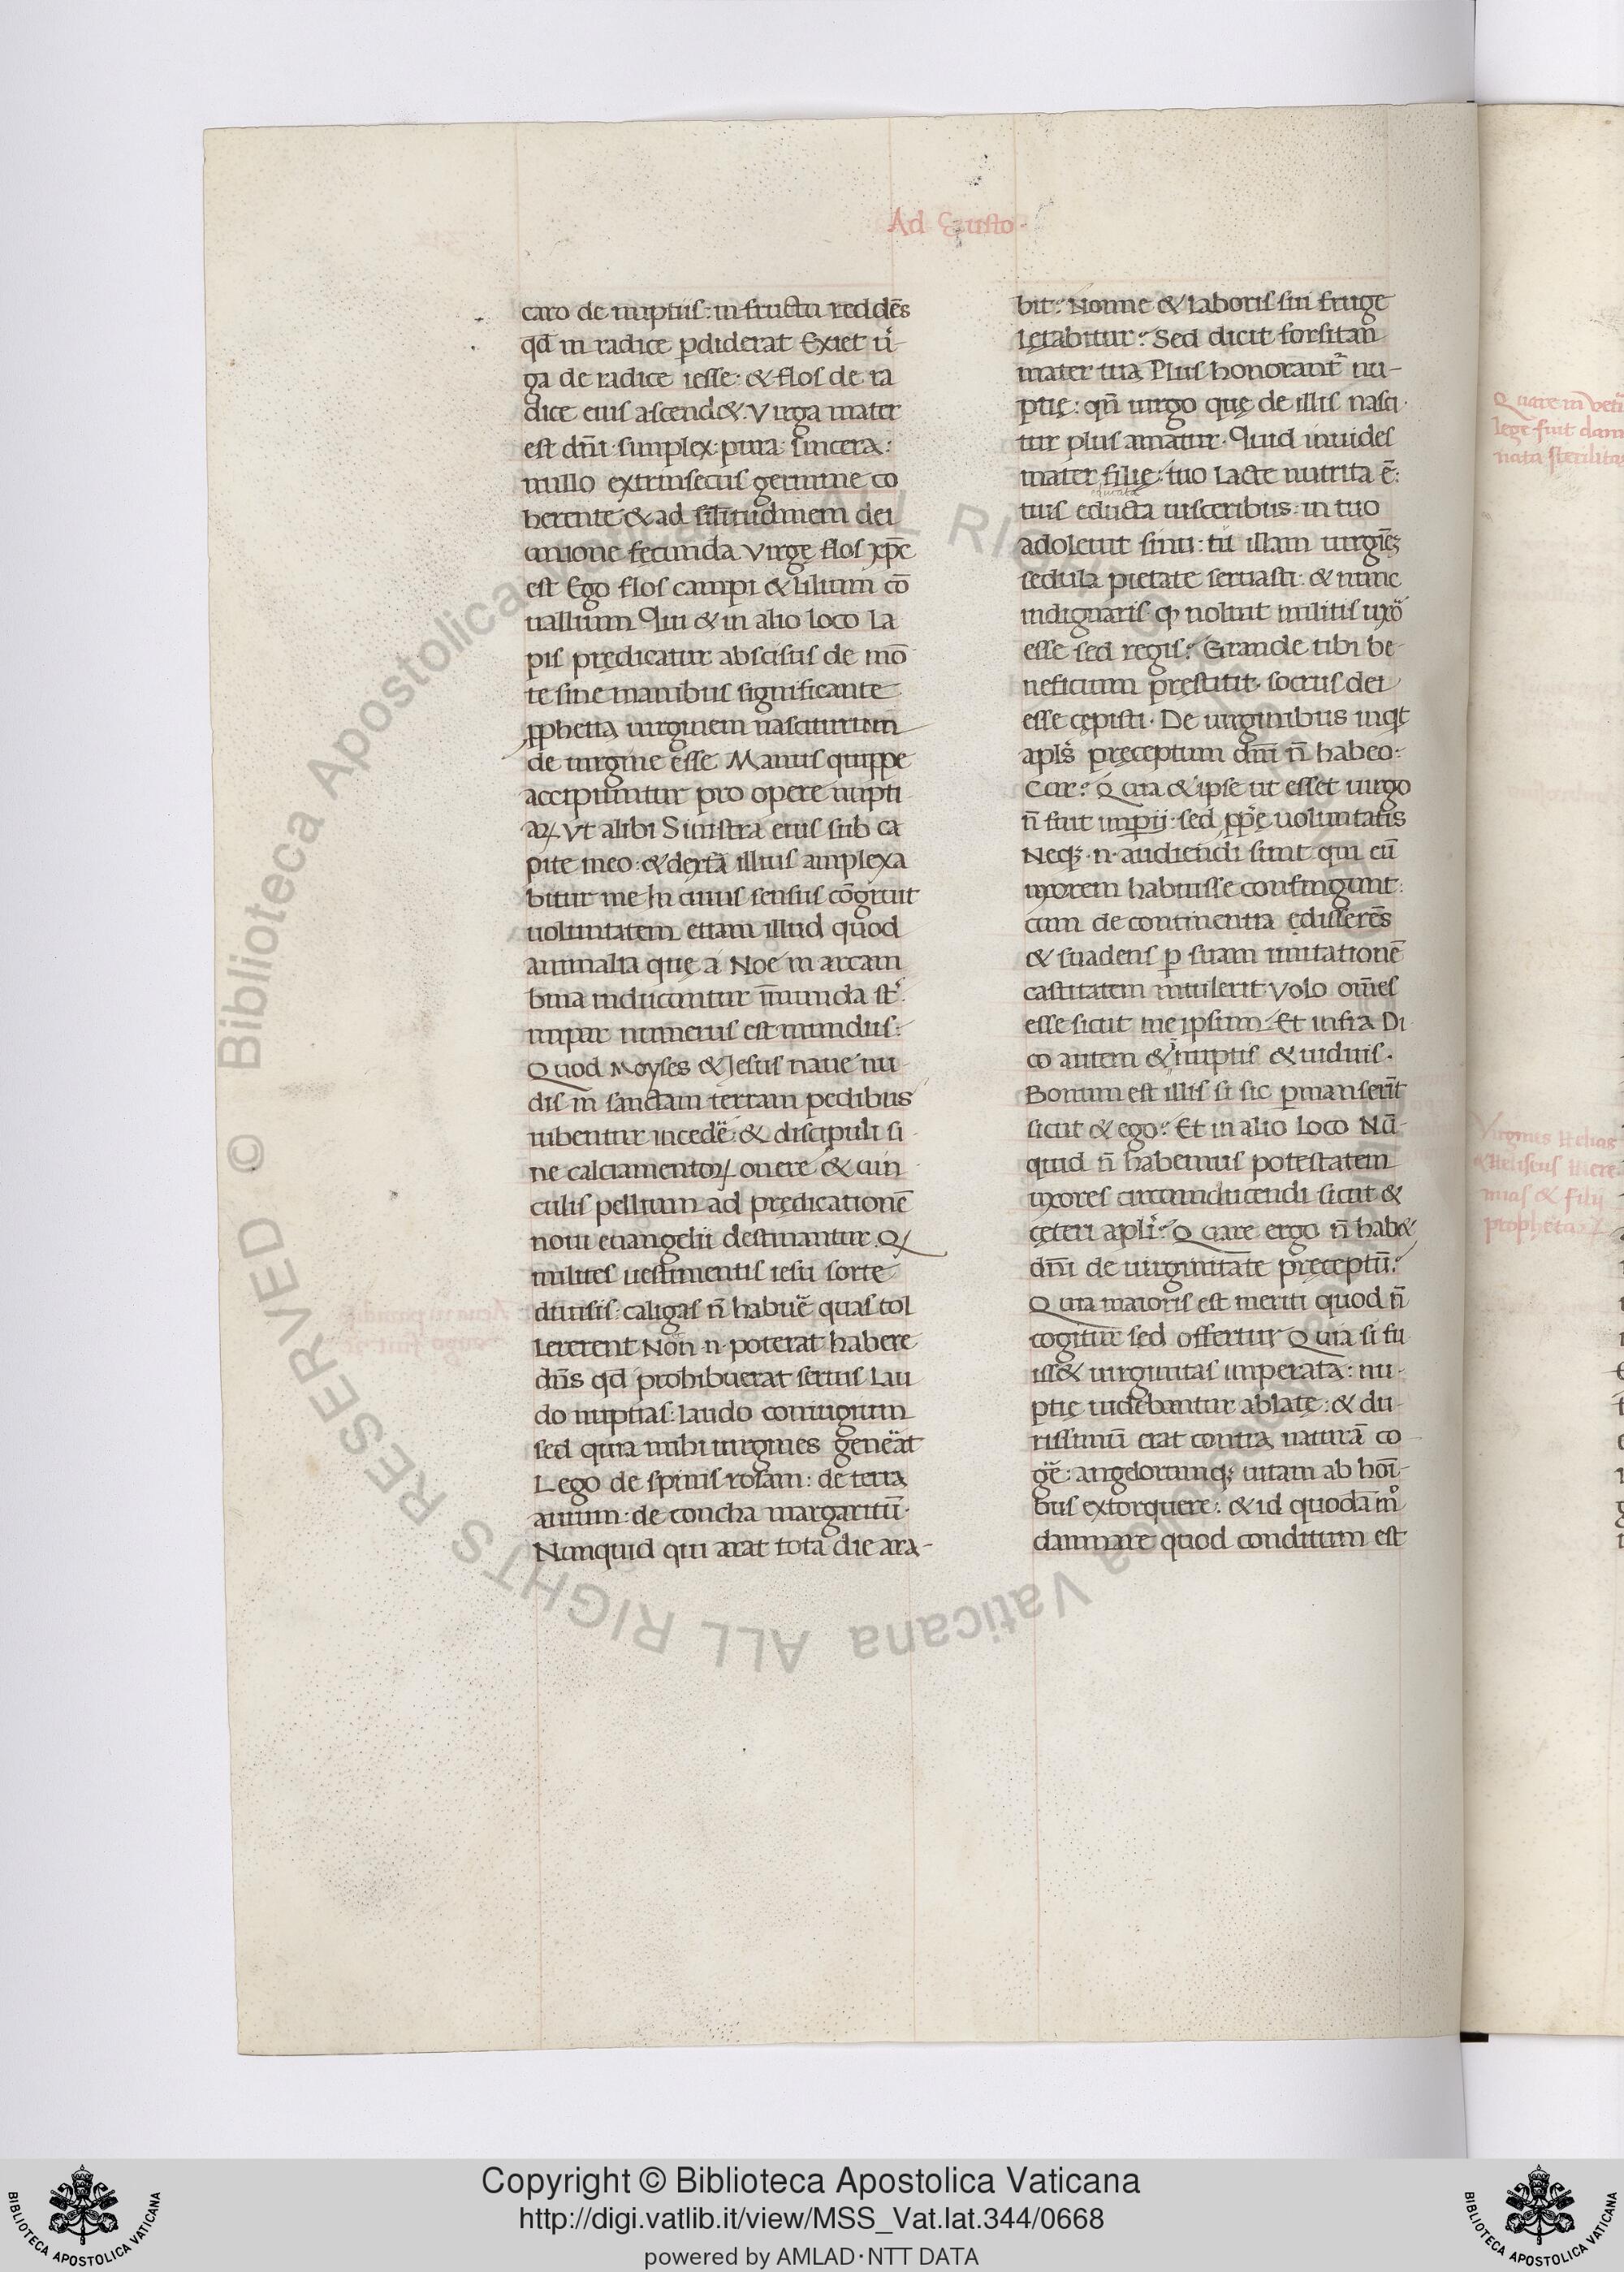 Ad Eusto-
caro de nuptiis: in fructu reddēs
qd̄ in radice ꝑdiderat Exiet uͥ-
ga de radice iesse: & flos de ra
dice eius ascend&. Virga mater
est dn̄i simplex: pura: sincera:
nullo extrinsecus germine co
herente & ad sil̄itudinem dei
unione fecunda Virge flos xp̄c
est Ego flos campi & lilium cō
uallium Qui & in alio loco la
pis prędicatur abscisus de mō
te sine manibus significante
ꝓphetia uirginem nasciturum
de uirgine esse Manus quippe
accipiuntur pro opere nupti
aꝝ Vt alibi Sinistra eius sub ca
pite meo: & dextā illius amplexa
bitur me In cuius sensus cōgruit
uoluntatem etiam illud quod
animalia quę a Noe in arcam
bina inducuntur īmunda st̄.
impar numerus est mundus:
Quod Moyses & Jesus naue nu-
dis in sanctam terram pedibus
iubentur incedē: & discipuli si
ne calciamentoꝝ onere & uin
culis pellium ad prędicationē
noui euangelii destinantur Qꝫ
milites uestimentis iesu sorte
diuisis: caligas n̄ habuē quas tol
lererent Non .n. poterat habere
dn̄s qd̄ prohibuerat seruis Lau
do nuptias: laudo coniugium
sed quia mihi uirgines genēat
Lego de spinis rosam: de terra
aurum: de concha margaritū.
Nunquid qui arat tota die ara-
bit? Nonne & laboris sui fruge
lętabitur? Sed dicit forsitan
mater tua Plus honorant᷑ nu-
ptię: qn̄ uirgo quę de illis nasci-
tur plus amatur. Quid inuides
mater filię: tuo lacte nutrita ē:
tuis educta uisceribus: in tuo
adoleuit sinu: tu illam uirgīeꝫ
sedula pietate seruasti: & nunc
indignaris ꝙ noluit militis uxoͬ
esse sed regis? Grande tibi be-
neficium pręstitit. socrus dei
esse cępisti. De uirginibus inqͥt
apl̄s pręceptum dn̄i n̄ habeo:
Cur? Quia & ipse ut esset uirgo
n̄ fuit imperii: sed ꝓp̄ę uoluntatis
Neqꝫ .n. audiendi sunt qui eū
uxorem habuisse confingunt:
cum de continentia ędisserēs
& suadens ꝑ suam imitationē
castitatem intulerit Volo om̄es
esse sicut me ipsum Et infra Di
co autem & nuptis & uiduis.
Bonum est illis si sic ꝑmanserīt
sicut & ego? Et in alio loco Nū-
quid n̄ habemus potestatem
uxores circumducendi sicut &
cęteri apl̄i? Quare ergo n̄ hab&
dn̄i de uirginitate pręceptū?
Quia maioris est meriti quod n̄
cogitur sed offertur Quia si fu
iss& uirginitas imperata: nu-
ptię uidebantur ablatę: & du-
rissimū erat contra naturā co
gē: angelorumqꝫ uitam ab hoī-
bus extorquere: & id quodā mͦ
damnare quod conditum est
Quare in veti
lege fuit dam
nata sterilitas
Virgines Helias
& Heliseus Hiere
mias & filij
prophetaꝝ
© Biblioteca Apostolica Vaticana ALL RIGHTS RESERVED
Copyright © Biblioteca Apostolica Vaticana
http://digi.vatlib.it/view/MSS_Vat.lat.344/0668
powered by AMLAD·NTT DATA
BIBLIOTECA APOSTOLICA VATICANA
BIBLIOTECA APOSTOLICA VATICANA